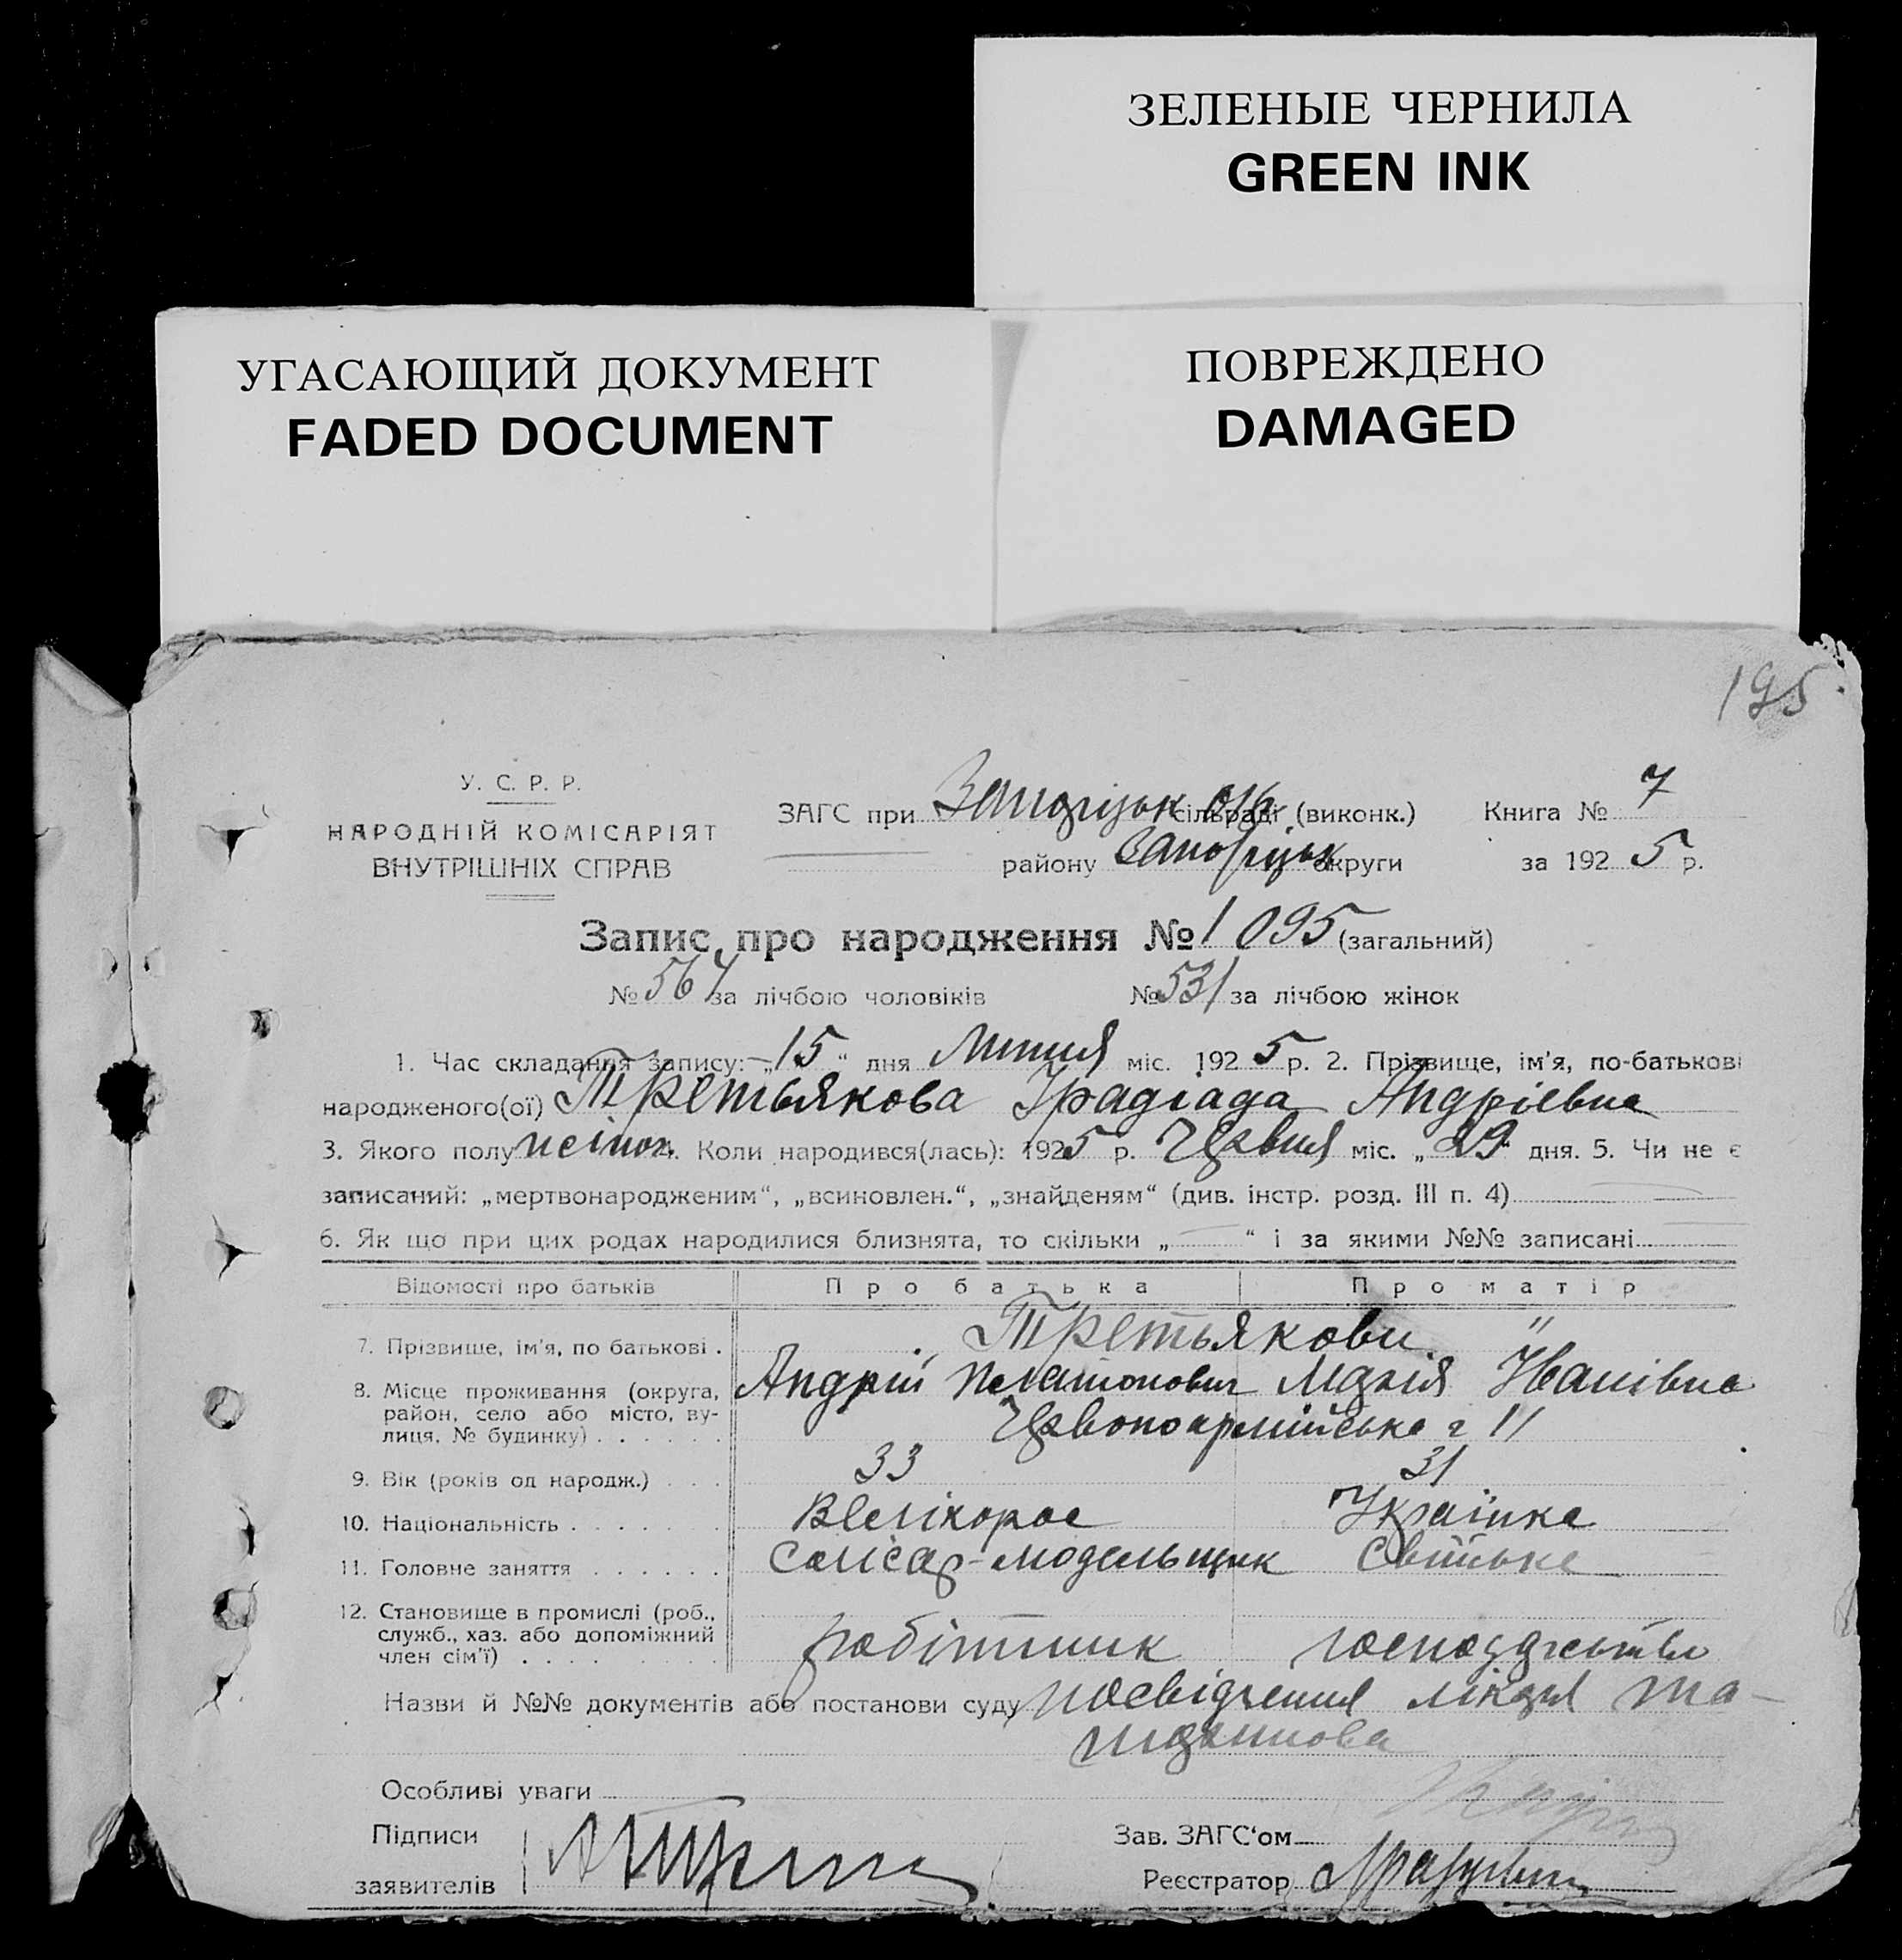 ЗЕЛЕНЫЕ ЧЕРНИЛА
GREEN INK
УГАСАЮЩИЙ ДОКУМЕНТ
FADED DOCUMENT
ПОВРЕЖДЕНО
DAMAGED
195
У. С. Р. Р.
НАРОДНІЙ КОМІСАРІЯТ
ВНУТРІШНІХ СПРАВ
ЗАГС при Запоріцьк окр сільраді (виконк.) Книга № 7
району Запоріцьк округи за 192 5 р.
Запис про народження № 1095 (загальний)
№ 564 за лічбою чоловіків № 531 за лічбою жінок
1. Час складання запису: „15“ дня Липня міс. 192 5 р. 2. Прізвище, ім'я, по-батькові
народженого(ої) Третьякова Іраđіада Андріевна
3. Якого полу жіноч. 4. Коли народився(лась): 1925 р. Червня міс. „29“ дня. 5. Чи не є
записаний: „мертвонародженим“, „всиновлен.“, „знайденям“ (див. інстр. розд. III п. 4)
6. Як що при цих родах народилися близнята, то скільки „ “ і за якими №№ записані
Відомості про батьків Про батька Про матір
7. Прізвише, ім'я, по батькові . Третьякови "
Андрій Платонович Марія Іванівна
8. Місце проживання (округа, район, село або місто, вулиця, № будинку) Червоноармійська 2 11
9. Вік (років од народж.) 33 31
10. Національність Великорос Українка
11. Головне заняття Слісар-модельщик Свійське
12. Становище в промислі (роб., служб., хаз. або допоміжний член сім'ї) робітник господарство
Назви й №№ документів або постанови суду посвідчення лікаря
Особливі уваги
Підписи
заявителів
Зав. ЗАГС'ом
Реєстратор